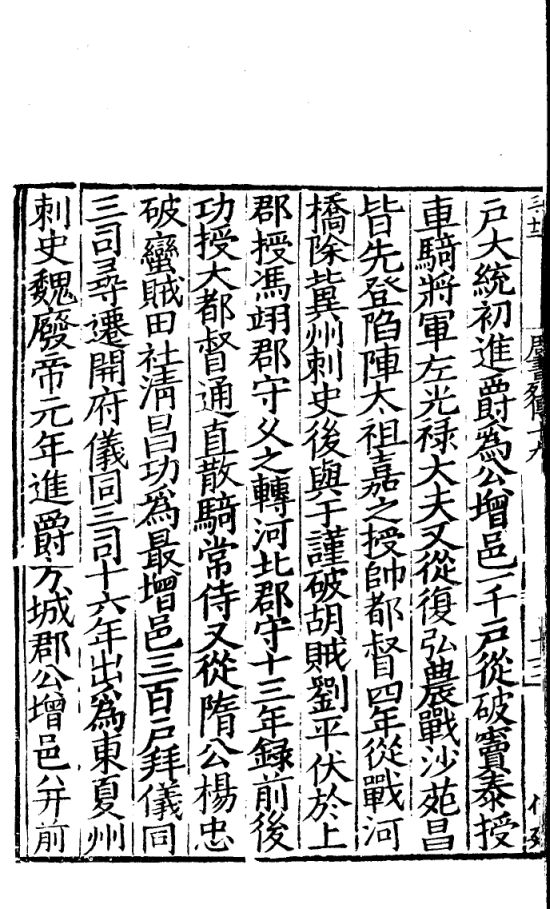 戸大統初進爵為公增邑一千戸從破竇泰授
車騎將軍左光祿大夫又從復弘農戰沙苑昌
皆先登陷陣太祖嘉之授帥都督四年從戰河
橋除冀州刺史後與于謹破胡賊劉平伏於上
郡授馮翊郡守乆之轉河北郡守十三年録前後
功授大都督通直散騎常侍又從隋公楊忠
破蠻賊田社清昌功為最增邑三百戸拜儀同
三司尋遷開府儀同三司十六年出為東夏州
刺史魏廢帝元年進爵方城郡公增邑并前